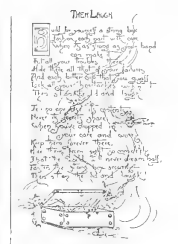 THEN LAUGH
Build for yourself a strong box,
Fashion each part with care;
When it's strong as your hand can make it,
Put all your troubles there;
Hide there all thought of your failures,
And each bitter cup that you quaff;
Lock all your heartaches within it,
Then sit on the lid and laugh.
Tell no one else its contents,
Never its secrets share;
When you've dropped in your care and worry
Keep them forever there;
Hide them from sight so completely
That the world will never dream half;
Fasten the strong box securely
Then sit on the lid and laugh.